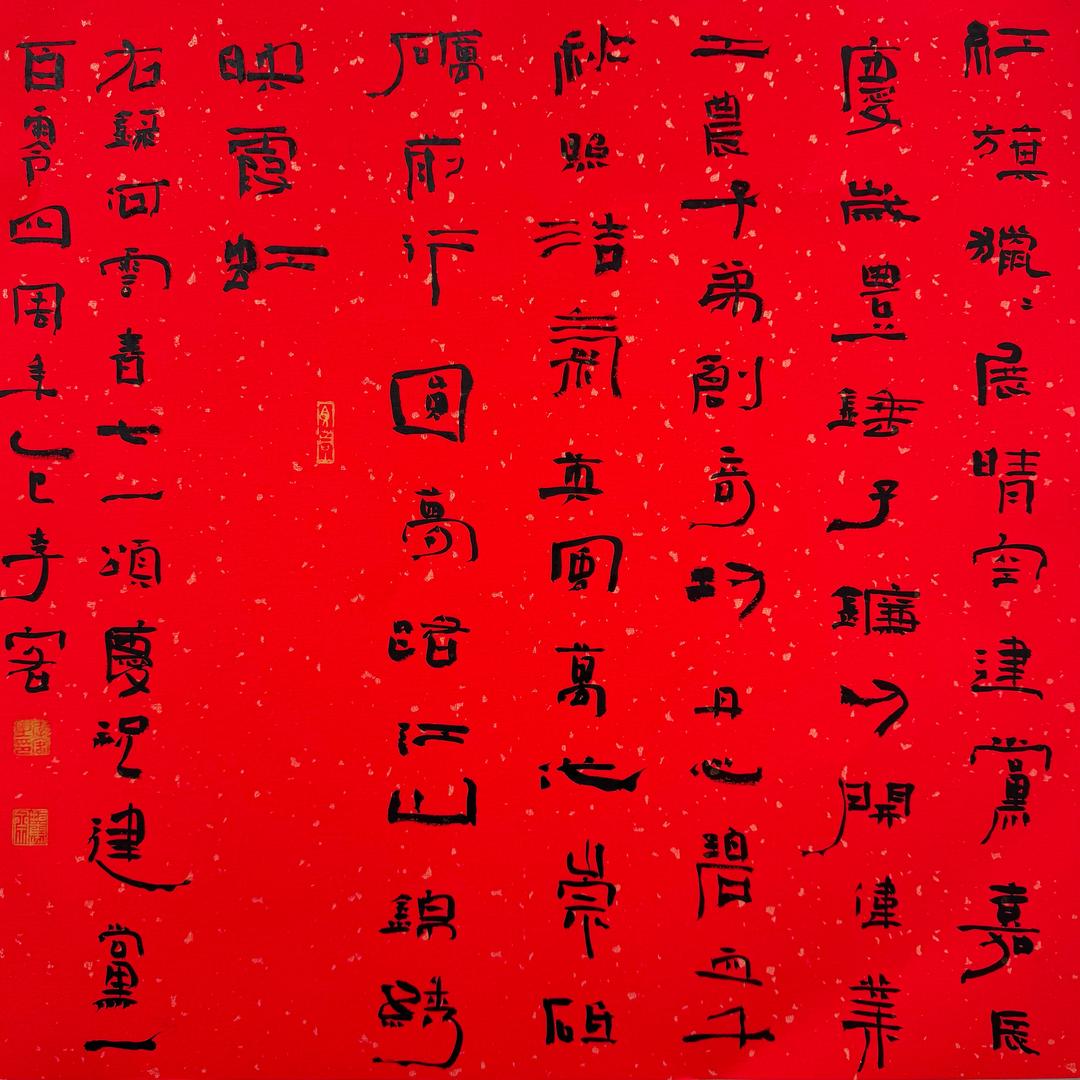 紅旗獵〻展晴空建黨嘉辰
慶歲豐錘子鐮刀開偉業
工農子弟創奇功丹心碧血千
秋照浩氣英風萬世崇砥
礪前行圓夢路江山錦繡
映霞虹
右錄何雲春七一頌慶祝建黨一
百零四周年乙巳客